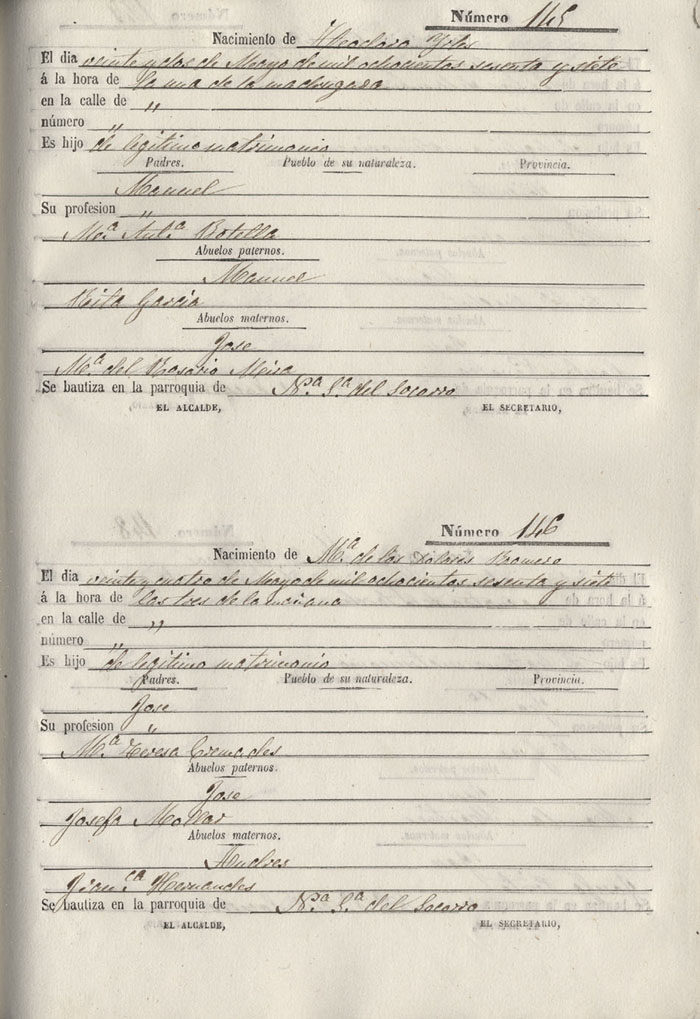 Número 145
Nacimiento de Theodora
El dia veinte y dos de Mayo de mil ochocientos sesenta y siete
á la hora de la una de la madrugada
en la calle de „
número „
Es hijo de legitimo matrimonio
Padres. Pueblo de su naturaleza. Provincia.
Manuel
Su profesion „
Mª. Antª. Botella
Abuelos paternos.
Manuel
Rita Garcia
Abuelos maternos.
Jose
Mª. del Rosario Mira
Se bautiza en la parroquia de Nª. Sª. del Socorro
EL ALCALDE, EL SECRETARIO,
Número 146
Nacimiento de Mª. de los Dolores Romero
El dia veinte y cuatro de Mayo de mil ochocientos sesenta y siete
á la hora de las tres de la mañana
en la calle de „
número „
Es hijo de legitimo matrimonio
Padres. Pueblo de su naturaleza. Provincia.
Jose
Su profesion „
Mª. Teresa Cremades
Abuelos paternos.
Jose
Josefa Mollar
Abuelos maternos.
Andres
Franca. Hernandes
Se bautiza en la parroquia de Nª. Sª. del Socorro
EL ALCALDE, EL SECRETARIO,